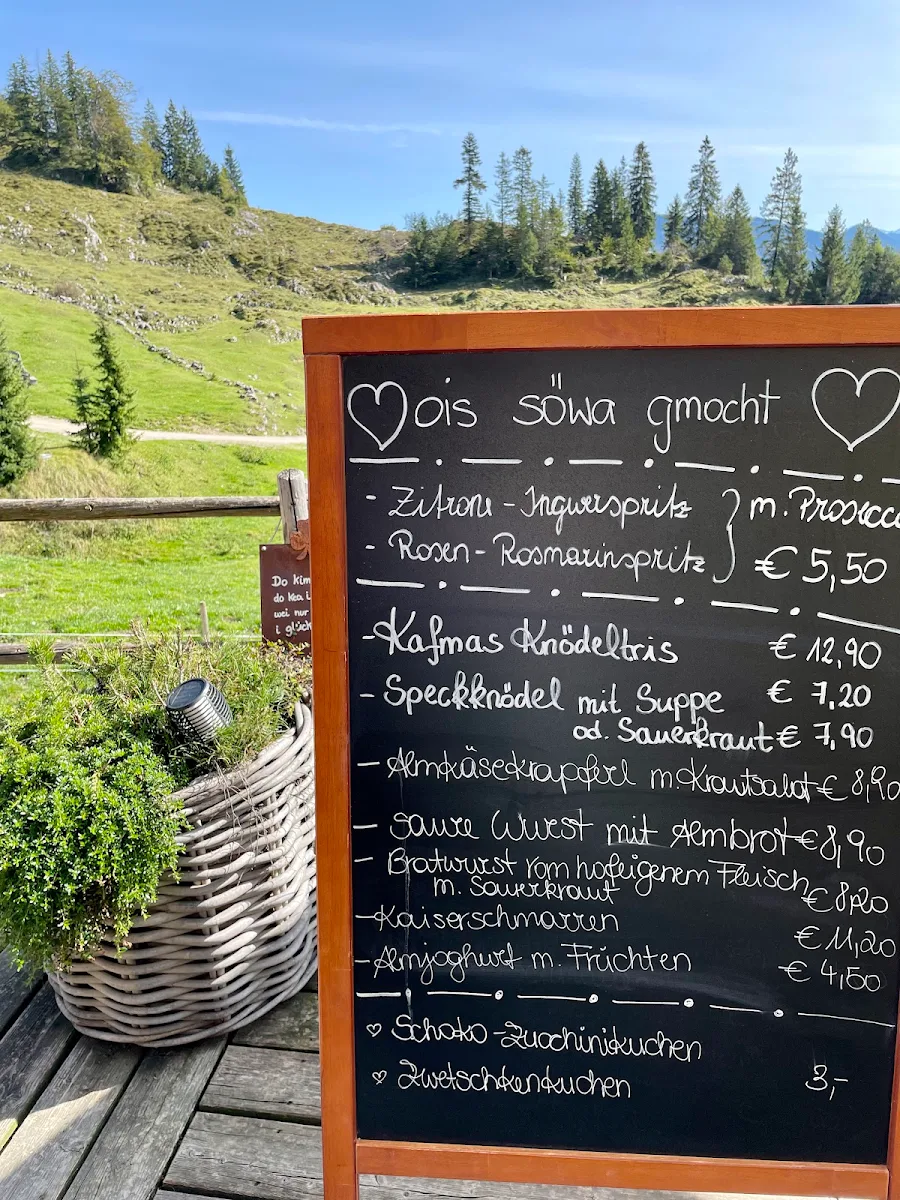 ois söwa gmocht
- Zitrone-Ingwerspritz } m. Prosecc
- Rosen-Rosmarinspritz € 5,50
- Kafmas Knödeltris € 12,90
- Speckknödel mit Suppe € 7,20
od. Sauerkraut € 7,90
- Almkäsekrapferl m. Krautsalat € 8,90
- saure Wurst mit Almbrot € 8,90
- Bratwurst vom hofeigenem Fleisch
m. Sauerkraut € 8,20
- Kaiserschmarren € 11,20
- Almjoghurt m. Früchten € 4,50
Schoko-Zucchinikuchen
Zwetschkenkuchen 3,-
Do kim
do kea i
wei nur
i glück